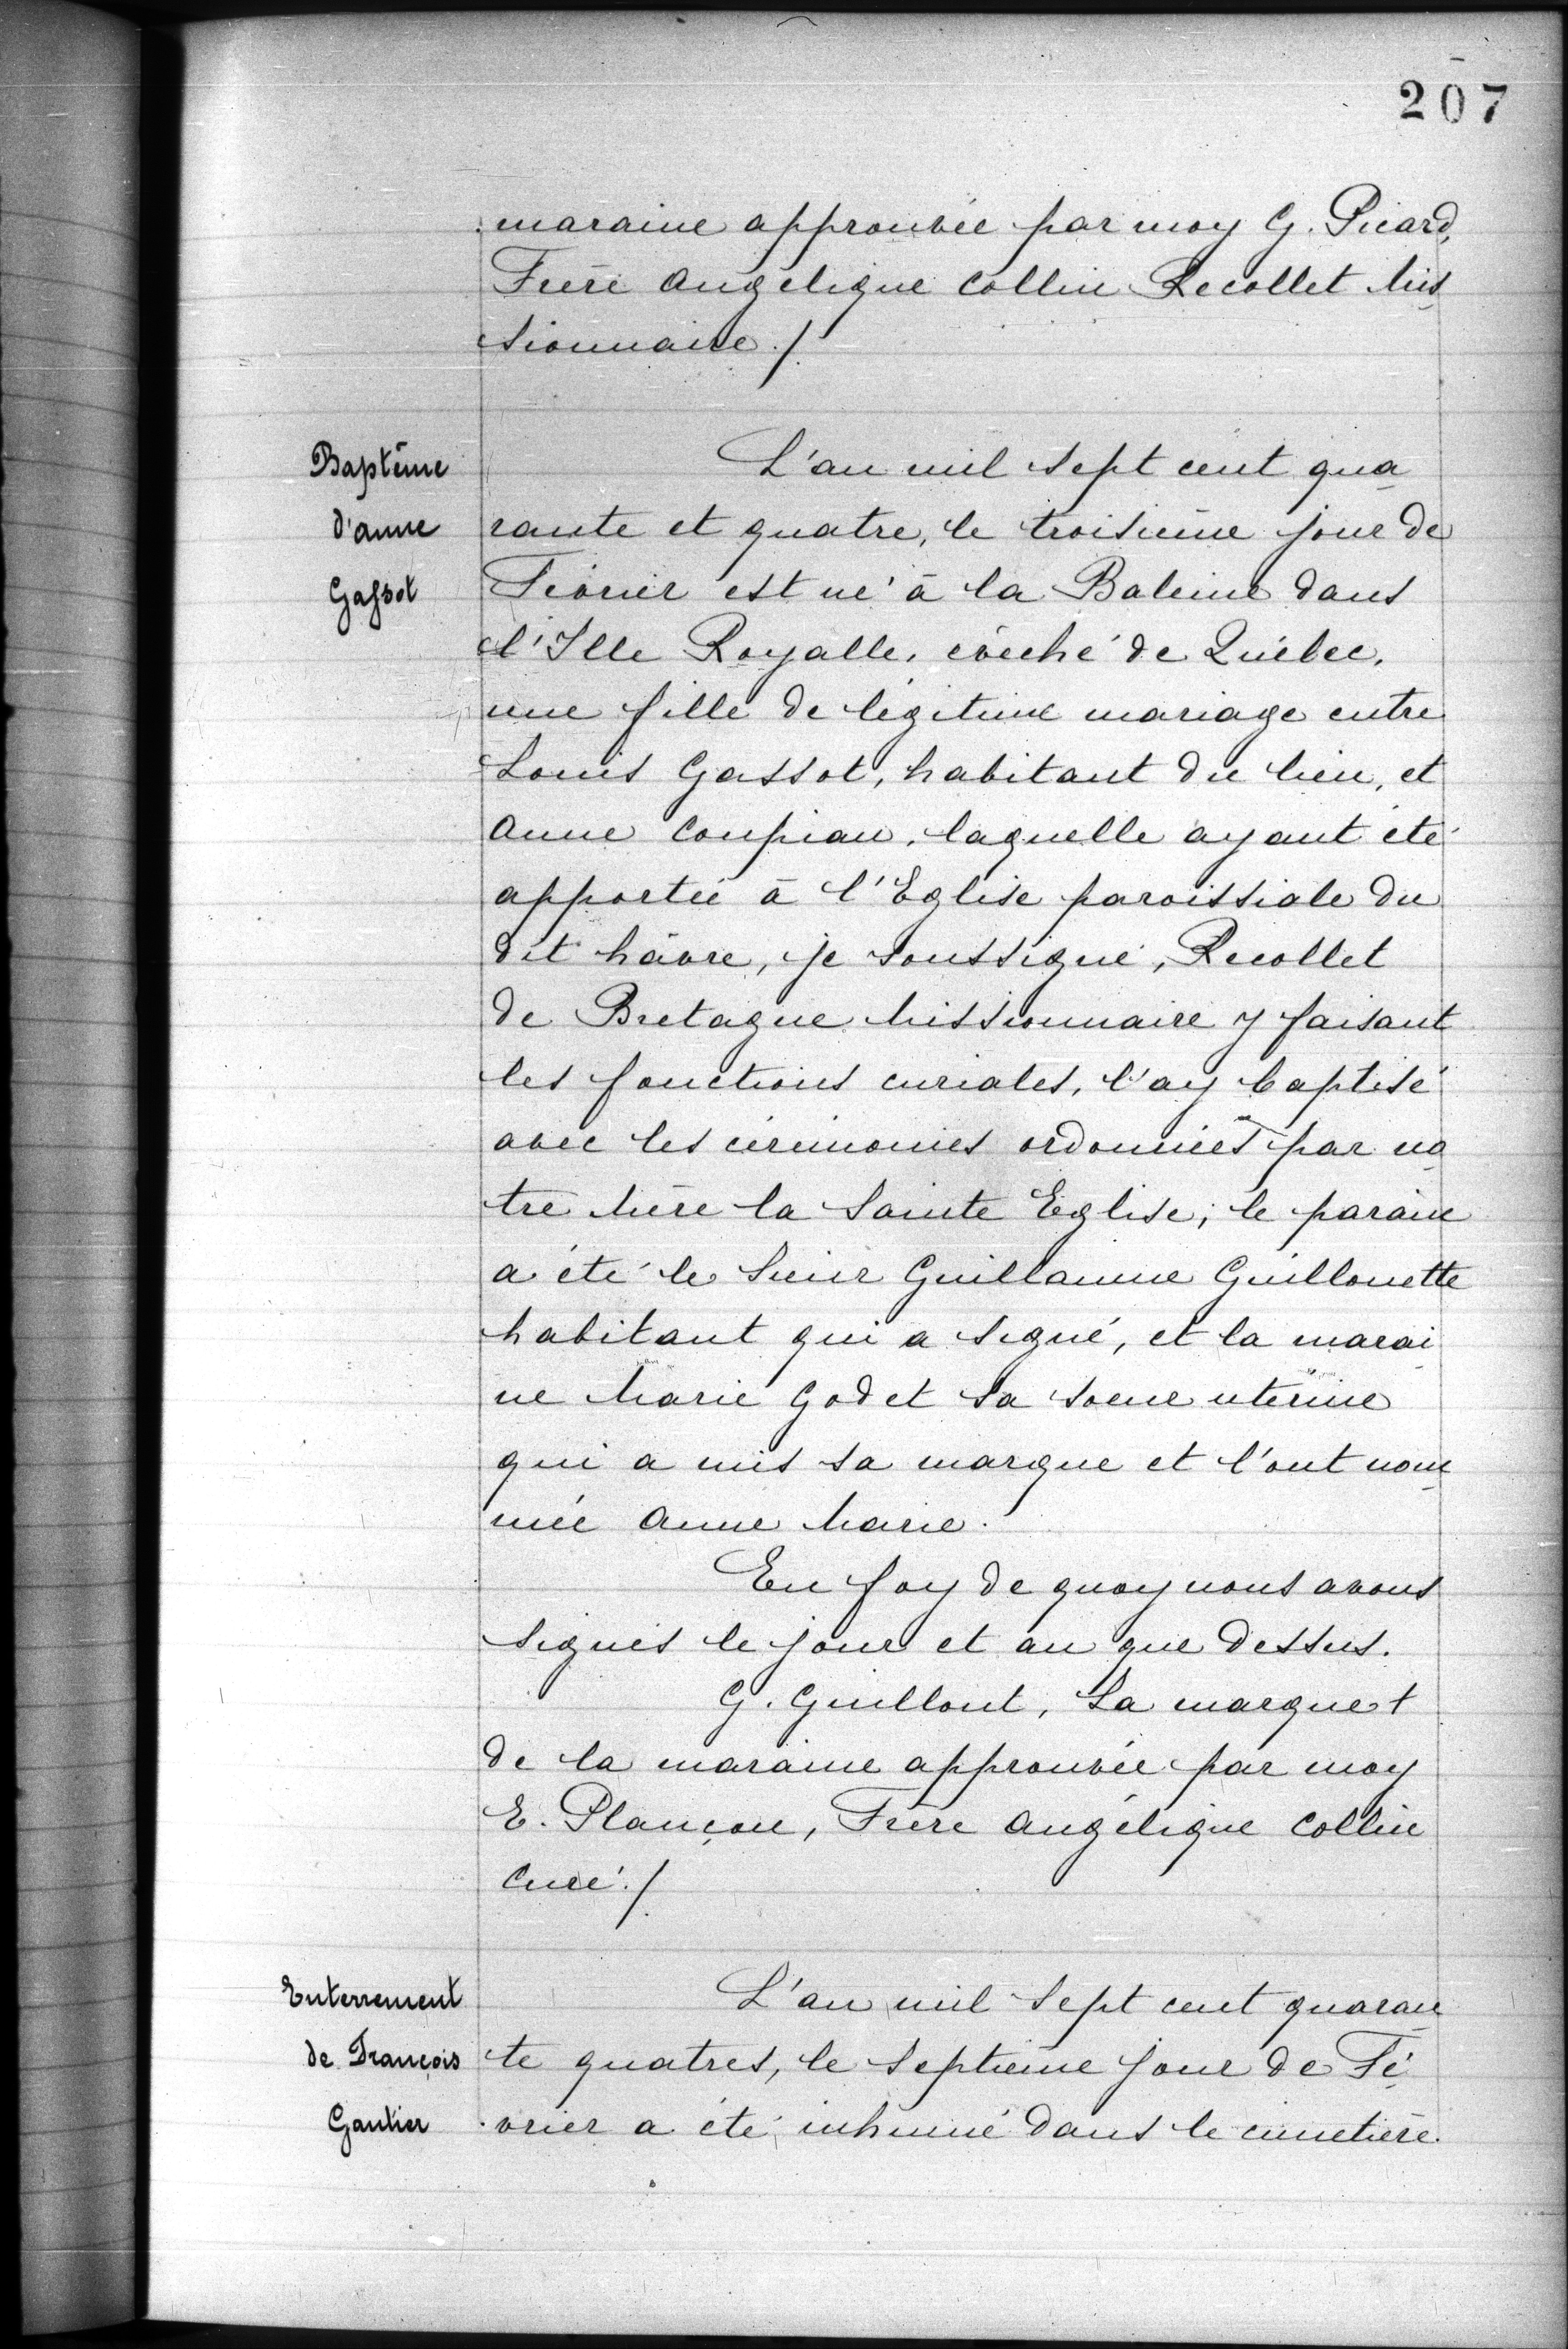 207
maraine approuvée par moy G. Picard,
Frère Angélique Collin Recollet Mis
sionnaire ./
Baptême
d'Anne
Gassot
L'an mil sept cent qua
rante et quatre, le troisième jour de
Février est né à la Baleine dans
l'Isle Royalle, évêché de Québec,
une fille de légitime mariage entre
Louis Gassot, habitant du lieu, et
Anne Coupiau, laquelle ayant été
apportée à l'Eglise paroissiale du
dit hâvre, je soussigné, Recollet
de Bretagne Missionnaire y faisant
les fonctions curiales, l'ay baptisé
avec les cérémonies ordonnées par no
tre Mère la Sainte Eglise; le parain
a été le Sieur Guillaume Guillouette
habitant qui a signé, et la marai
ne Marie Godet sa soeur utérine
qui a mis sa marque et l'ont nom
mée Anne Marie.
En foy de quoy nous avons
signés le jour et an que dessus.
G. Guillout, La marque +
de la maraine approuvée par moy
E. Plançon, Frère Angélique Collin
Curé ./
Enterrement
de François
Gautier
L'an mil sept cent quaran
te quatres, le septième jour de Fé
vrier a été inhumé dans le cimetière